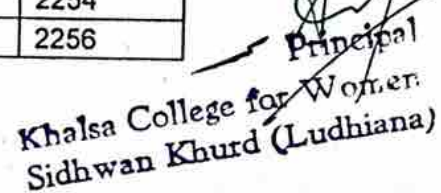 2254
2256
Principal
Khalsa College for Women
Sidhwan Khurd (Ludhiana)